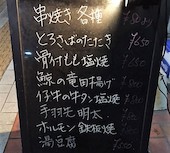 串焼き 各種
とろさばのたたき ¥650
骨付もも塩焼 ¥680
鯨の竜田揚げ
仔牛の牛タン塩焼
手羽先明太
ホルモン鉄板焼
湯豆腐